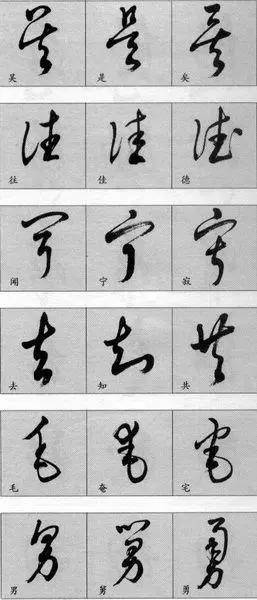 吴 是 矣
往 佳 德
闻 宁 寂
去 知 共
毛 奄 宅
男 舅 勇